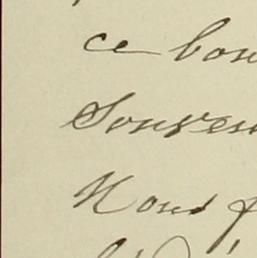 ce bon
Souven
Nous f